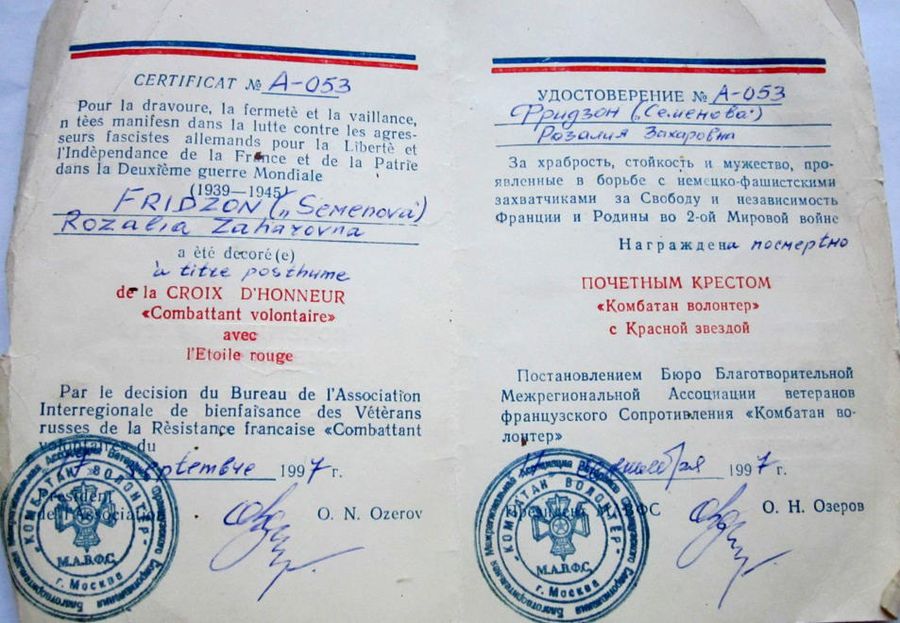 CERTIFICAT № A-053
Pour la dravoure, la fermetè et la vaillance,
n tèes manifesn dans la lutte contre les agres-
seurs fascistes allemands pour la Libertè et
l'Indèpendance de la France et de la Patrie
dans la Deuxième guerre Mondiale
(1939—1945)
FRIDZON („Semenova)
Rozalia Zaharovna
a été décoré(e)
à titre posthume
de la CROIX D'HONNEUR
«Combattant volontaire»
avec
l'Etoile rouge
Par le decision du Bureau de l'Association
Interregionale de bienfaisance des Vétérans
russes de la Rèsistance francaise «Combattant
volontaire» du
7 septembre 1997 г.
President
de l'Association
O. N. Ozerov
Благотворительная Межрегиональная Ассоциация Ветеранов Французского Сопротивления
"КОМБАТАН ВОЛОНТЕР"
М.А.В.Ф.С.
г. Москва
УДОСТОВЕРЕНИЕ № A-053
Фридзон („Семенова")
Розалия Захаровна
За храбрость, стойкость и мужество, про-
явленные в борьбе с немецко-фашистскими
захватчиками за Свободу и независимость
Франции и Родины во 2-ой Мировой войне
Награждена посмертно
ПОЧЕТНЫМ КРЕСТОМ
«Комбатан волонтер»
с Красной звездой
Постановлением Бюро Благотворительной
Межрегиональной Ассоциации ветеранов
французского Сопротивления «Комбатан во-
лонтер»
1997 г.
Президент МАВФС
О. Н. Озеров
Благотворительная Межрегиональная Ассоциация Ветеранов Французского Сопротивления
"КОМБАТАН ВОЛОНТЕР"
М.А.В.Ф.С.
г. Москва